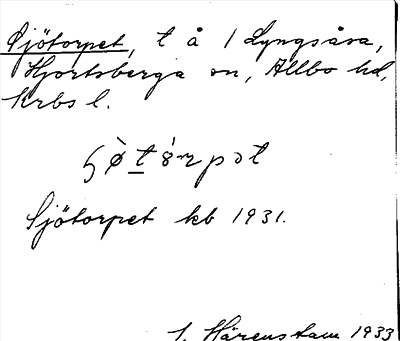 Sjötorpet, t å 1 Lyngsåsa,
Hjortsberga sn, Allbo hd,
Krbs l.
Sjötorpet kb 1931.
1. Härenstam 1933